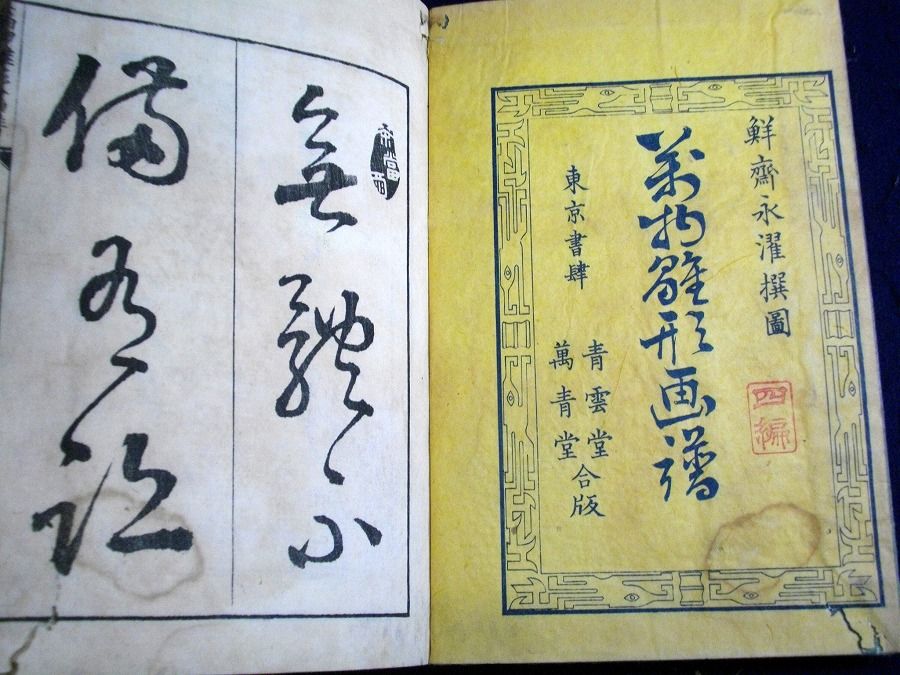 鮮齋永濯撰圖
萬物雛形画譜
四編
東京書肆
青雲堂
萬青堂
合版
無體不
備有